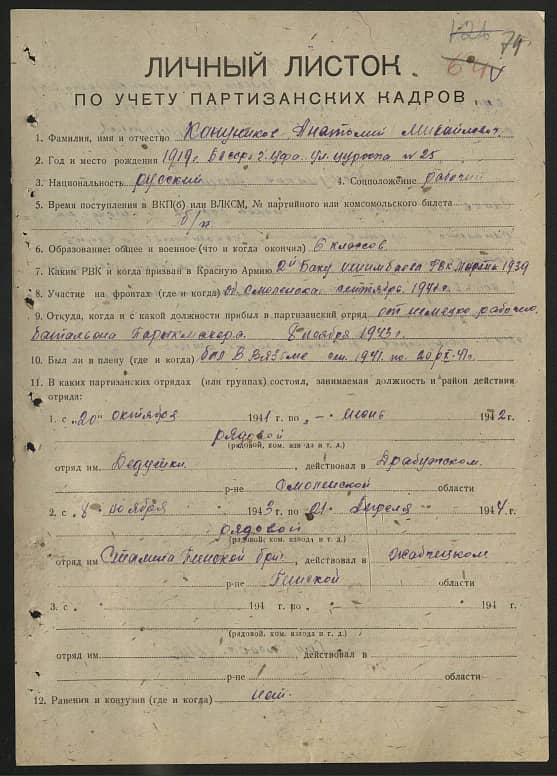 74
ЛИЧНЫЙ ЛИСТОК
ПО УЧЕТУ ПАРТИЗАНСКИХ КАДРОВ
1. Фамилия, имя и отчество Анатолий Михайлович
2. Год и место рождения 1919г. г. Уфа. ул. №25
3. Национальность русский 4. Соцположение рабочий
5. Время поступления в ВКП(б) или ВЛКСМ, № партийного или комсомольского билета
б/п
6. Образование: общее и военное (что и когда окончил) 6 классов
7. Каким РВК и когда призван в Красную Армию Баку РВК 1939
8. Участие на фронтах (где и когда) Смоленска сентябрь 1941г.
9. Откуда, когда и с какой должности прибыл в партизанский отряд от немецко рабочего
батальона 8 ноября 1943г.
10. Был ли в плену (где и когда) был в Вязьме 1941. по
11. В каких партизанских отрядах (или группах) состоял, занимаемая должность и район действия
отряда:
1. с „20" октября 1941 по „–" июнь 1942 г.
рядовой
(рядовой, ком. взвода и т. д.)
отряд им. Дедушки, действовал в
р-не Смоленской области
2. с „8" ноября 1943 г. по „21" Апреля 1944 г.
рядовой
(рядовой, ком. взвода и т. д.)
отряд им Сталина бриг, действовал в
р-не области
3. с 194 г. по 194 г.
(рядовой, ком. взвода и т. д.)
отряд им. действовал в
р-не области
12. Ранения и контузии (где и когда) нет.